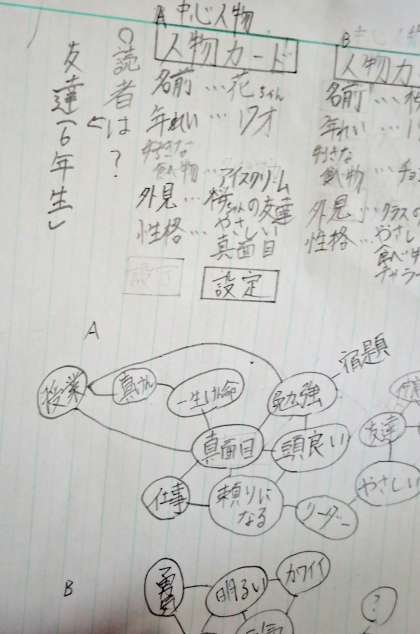 ○読者は?
友達(6年生)
A 中心人物
人物カード
名前…花ちゃん
年れい…17才
好きな
食べ物…アイスクリーム
外見…
の友達
性格…やさしい
真面目
設定
B 中心
人物カ
名前…
年れい…
好きな
食べ物…チョ
外見…クラスの
性格…やさしい
食べ
設定
A
授業
真けん
一生けん命
勉強
宿題
真面目
頭良い
友達
仕事
頼りに
なる
リーダー
やさしい
B
勇気
明るい
カワイイ
元気
?